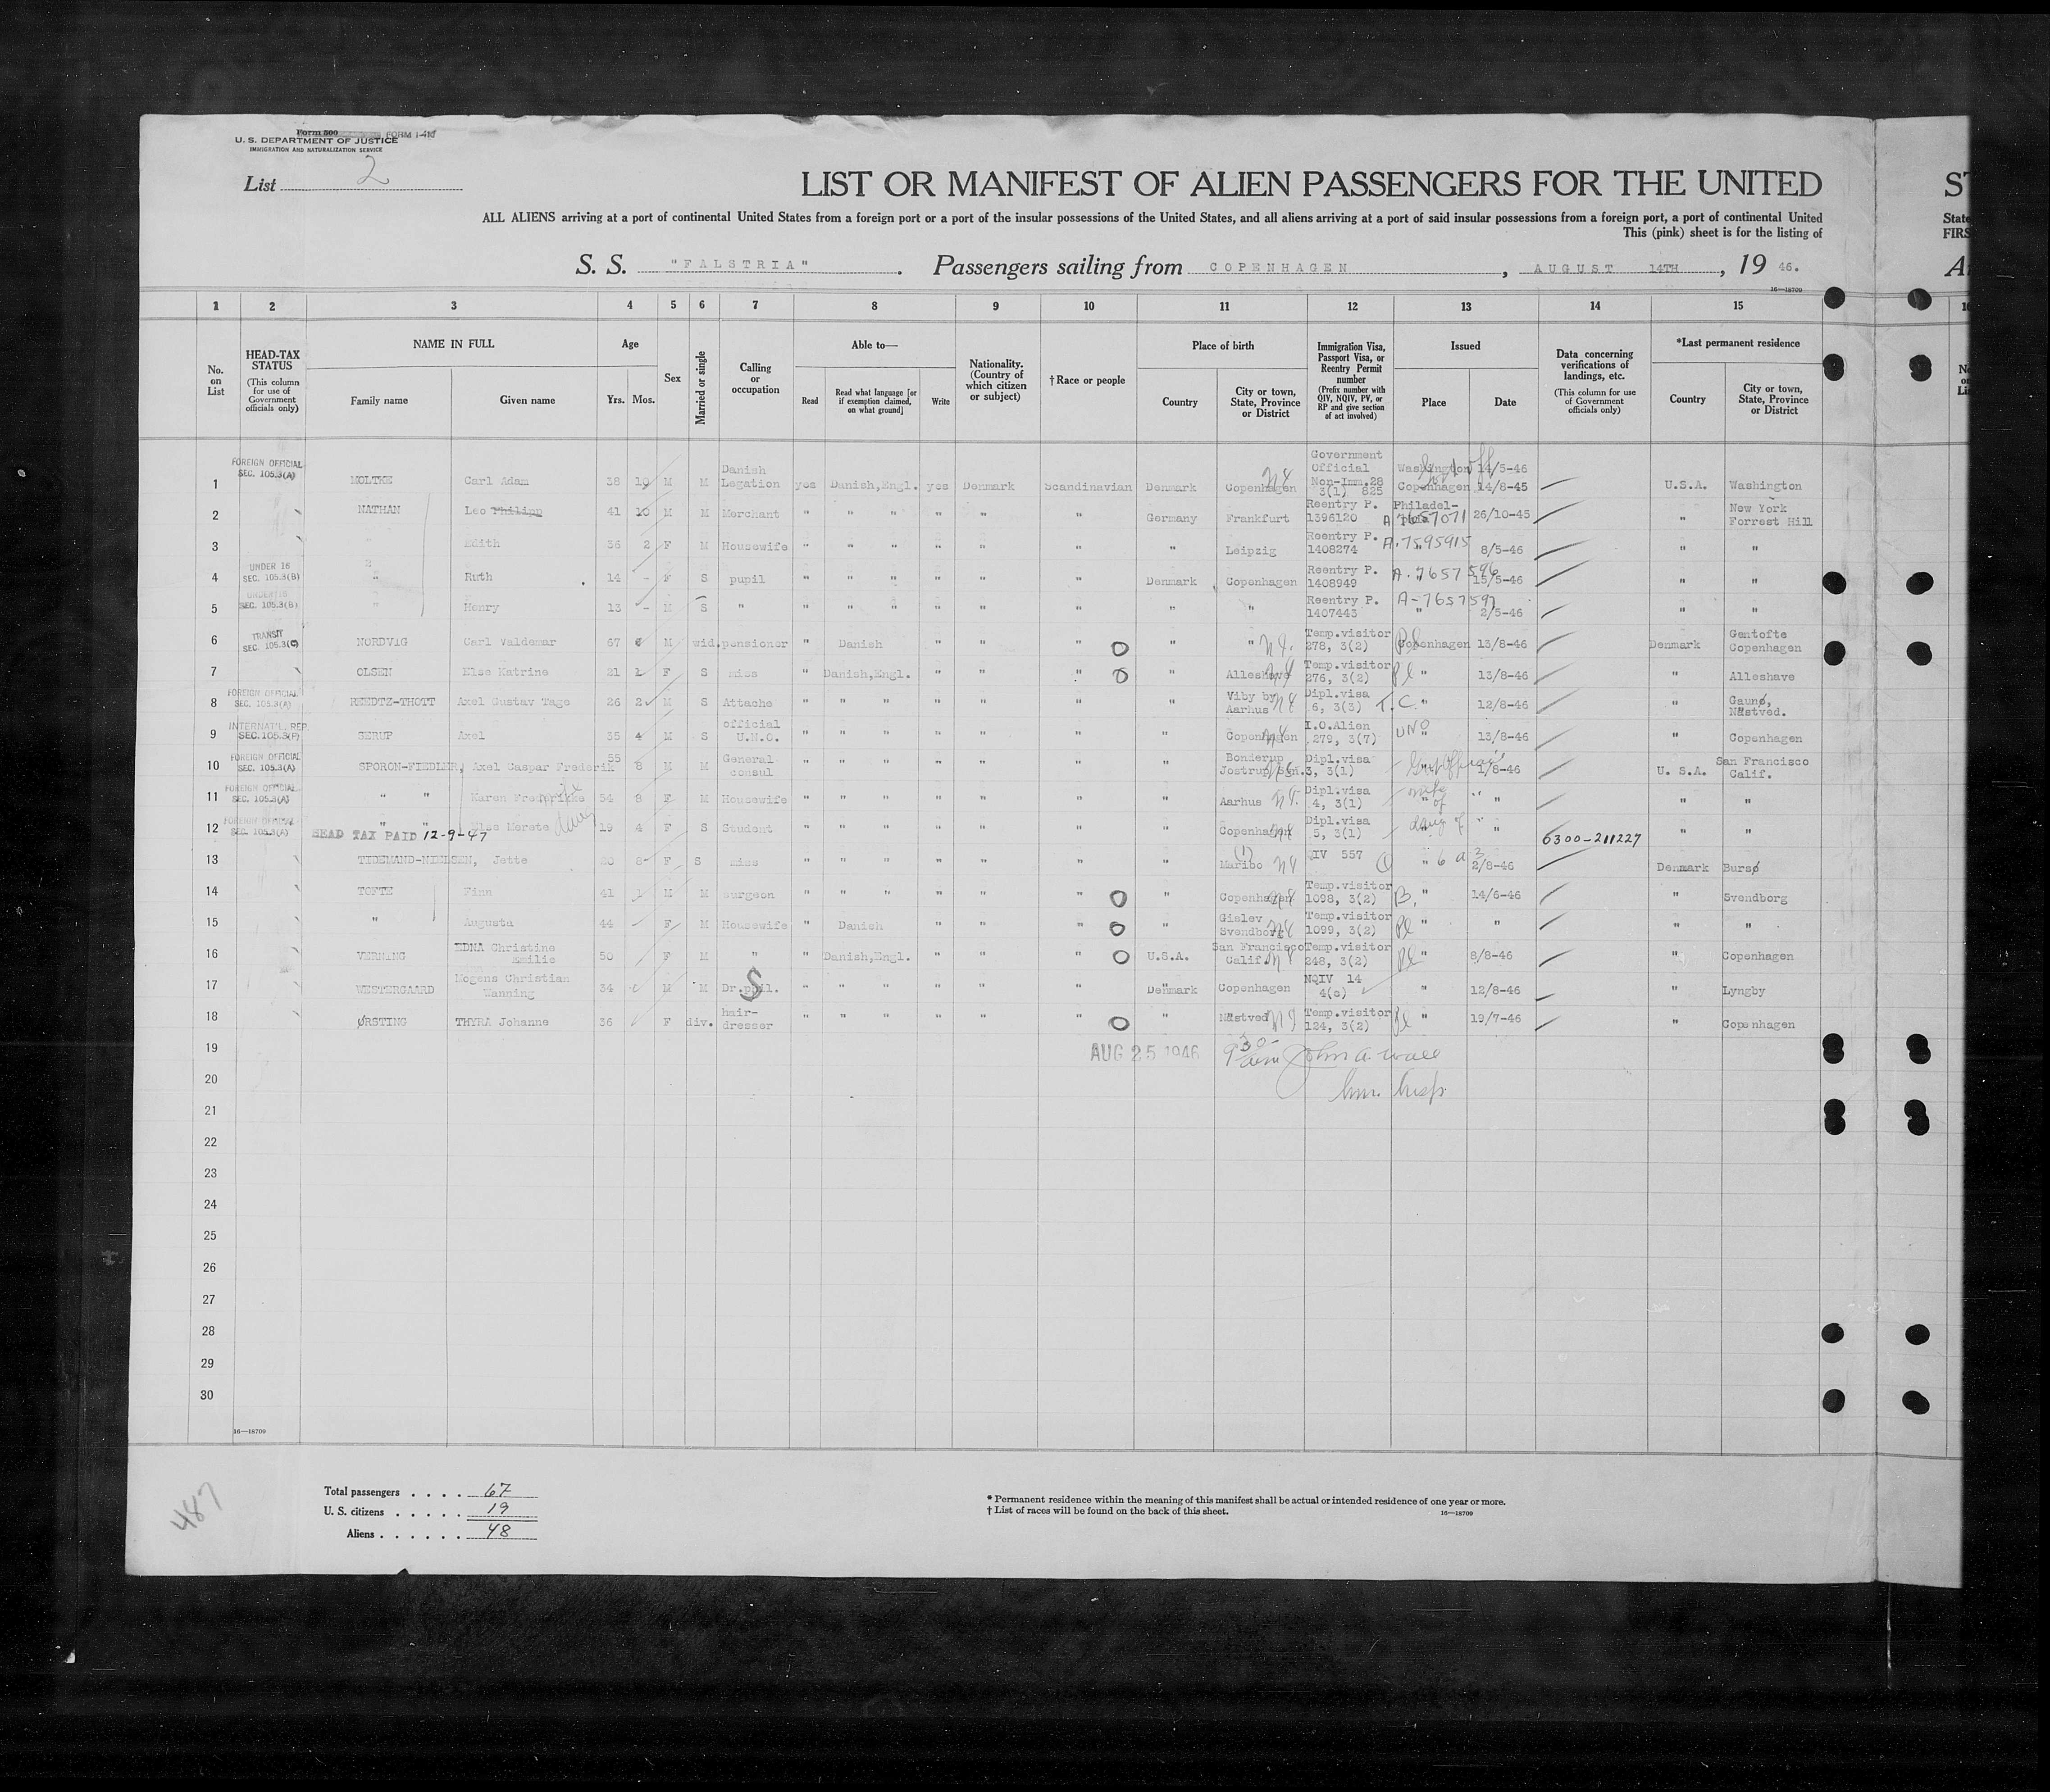 Form 500 FORM I-415
U. S. DEPARTMENT OF JUSTICE
IMMIGRATION AND NATURALIZATION SERVICE
List 2
LIST OR MANIFEST OF ALIEN PASSENGERS FOR THE UNITED
ST
ALL ALIENS arriving at a port of continental United States from a foreign port or a port of the insular possessions of the United States, and all aliens arriving at a port of said insular possessions from a foreign port, a port of continental United
State
This (pink) sheet is for the listing of
FIRS
S. S. "FALSTRIA". Passengers sailing from COPENHAGEN, AUGUST 14TH, 19 46.
16—18709
1 2 3 4 5 6 7 8 9 10 11 12 13 14 15
No. on List
HEAD-TAX STATUS (This column for use of Government officials only)
NAME IN FULL
Family name Given name
Age
Yrs. Mos.
Sex
Married or single
Calling or occupation
Able to—
Read Read what language [or if exemption claimed, on what ground] Write
Nationality. (Country of which citizen or subject)
† Race or people
Place of birth
Country City or town, State, Province or District
Immigration Visa, Passport Visa, or Reentry Permit number (Prefix number with QIV, NQIV, PV, or RP and give section of act involved)
Issued
Place Date
Data concerning verifications of landings, etc. (This column for use of Government officials only)
*Last permanent residence
Country City or town, State, Province or District
1 FOREIGN OFFICIAL SEC. 105.3(A) MOLTKE Carl Adam 38 10 M M Danish Legation yes Danish,Engl. yes Denmark Scandinavian Denmark Copenhagen Government Official Non-Imm.28 3(1) 825 Washington 14/5-46 Copenhagen 14/8-45 U.S.A. Washington
2 NATHAN Leo Philipp 41 10 M M Merchant " " " " " " Germany Frankfurt Reentry P. 1396120 Philadelphia A 7657071 26/10-45 " New York Forrest Hill
3 " Edith 36 2 F M Housewife " " " " " " " Leipzig Reentry P. 1408274 A-7595915 " 8/5-46 " "
4 UNDER 16 SEC. 105.3(B) " Ruth 14 - F S pupil " " " " " " Denmark Copenhagen Reentry P. 1408949 A-7657596 " 15/5-46 " "
5 UNDER 16 SEC. 105.3(B) " Henry 13 - M S " " " " " " " " " Reentry P. 1407443 A-7657597 " 2/5-46 " "
6 TRANSIT SEC. 105.3(C) NORDVIG Carl Valdemar 67 M wid. pensioner " Danish " " " " " Temp.visitor 278, 3(2) Copenhagen 13/8-46 Denmark Gentofte Copenhagen
7 OLSEN Else Katrine 21 1 F S miss " Danish,Engl. " " " " Alleshave Temp.visitor 276, 3(2) " 13/8-46 " Alleshave
8 FOREIGN OFFICIAL SEC. 105.3(A) REEDTZ-THOTT Axel Gustav Tage 26 2 M S Attache " " " " " " " Viby by Aarhus Dipl.visa 6, 3(3) T.C. " 12/8-46 " Gaunø, Næstved.
9 INTERNAT'L REP. SEC. 105.3(F) SERUP Axel 35 4 M S official U.N.O. " " " " " " " Copenhagen I.O.Alien 279, 3(7) UNO " 13/8-46 " Copenhagen
10 FOREIGN OFFICIAL SEC. 105.3(A) SPORON-FIEDLER, Axel Caspar Frederik 55 8 M M General consul " " " " " " " Bonderup Jostrup Dipl.visa 3, 3(1) " 1/8-46 U. S.A. San Francisco Calif.
11 FOREIGN OFFICIAL SEC. 105.3(A) " " Karen Frederikke wife 54 8 F M Housewife " " " " " " " Aarhus Dipl.visa 4, 3(1) wife of " " " "
12 FOREIGN OFFICIAL SEC. 105.3(A) " " Else Merete 19 4 F S Student " " " " " " " Copenhagen Dipl.visa 5, 3(1) daug of " " " "
HEAD TAX PAID 12-9-47 6300-211227
13 TIDEMAND-NIELSEN, Jette 20 8 F S miss " " " " " " " (1) Maribo QIV 557 " 6 a 3 2/8-46 Denmark Bursø
14 TOFTE Finn 41 1 M M surgeon " " " " " " " Copenhagen Temp.visitor 1098, 3(2) B. " 14/6-46 " Svendborg
15 " Augusta 44 F M Housewife " Danish " " " " Gislev Svendborg Temp.visitor 1099, 3(2) " " " "
16 VERNING EDNA Christine Emilie 50 F M " " Danish,Engl. " " " U.S.A. San Francisco Calif. Temp.visitor 248, 3(2) " 8/8-46 " Copenhagen
17 WESTERGAARD Mogens Christian Wanning 34 M M Dr.phil. S " " " " " " Denmark Copenhagen NQIV 14 4(c) " 12/8-46 " Lyngby
18 ØRSTING THYRA Johanne 36 F div. hair-dresser " " " " " " " Næstved Temp.visitor 124, 3(2) " 19/7-46 " Copenhagen
19 AUG 25 1946 9 30 am John A Wall
20 Imm. Insp.
21
22
23
24
25
26
27
28
29
30
16—18709
487
Total passengers . . . . 67
U. S. citizens . . . . . 19
Aliens . . . . . . 48
* Permanent residence within the meaning of this manifest shall be actual or intended residence of one year or more.
† List of races will be found on the back of this sheet. 16—18709